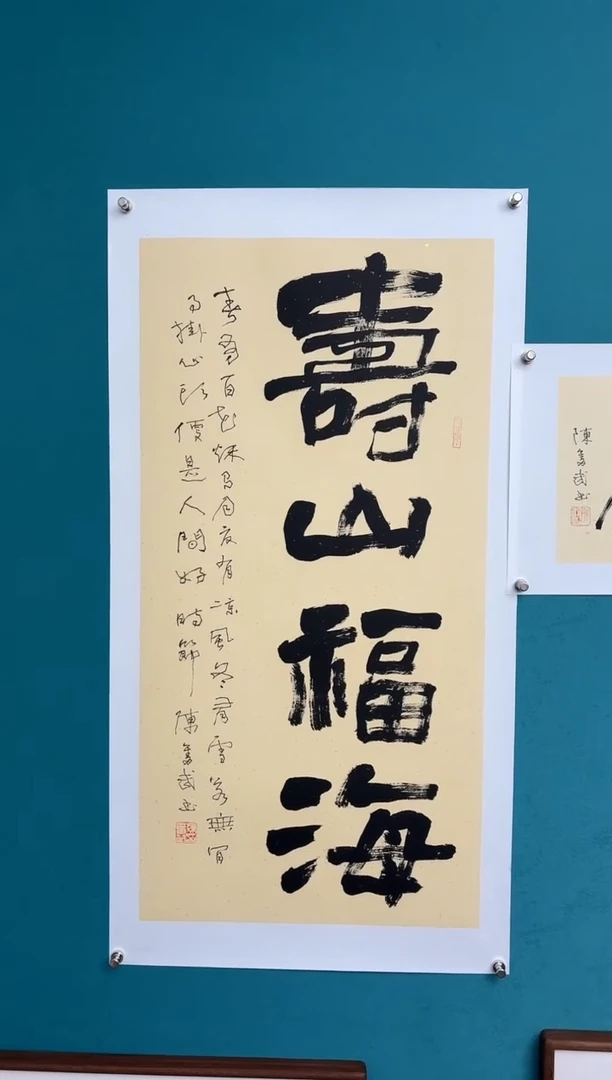 壽山福海
春有百花秋有月夏有涼風冬有雪若無閒
事掛心頭便是人間好時節 陳武书
陳武书